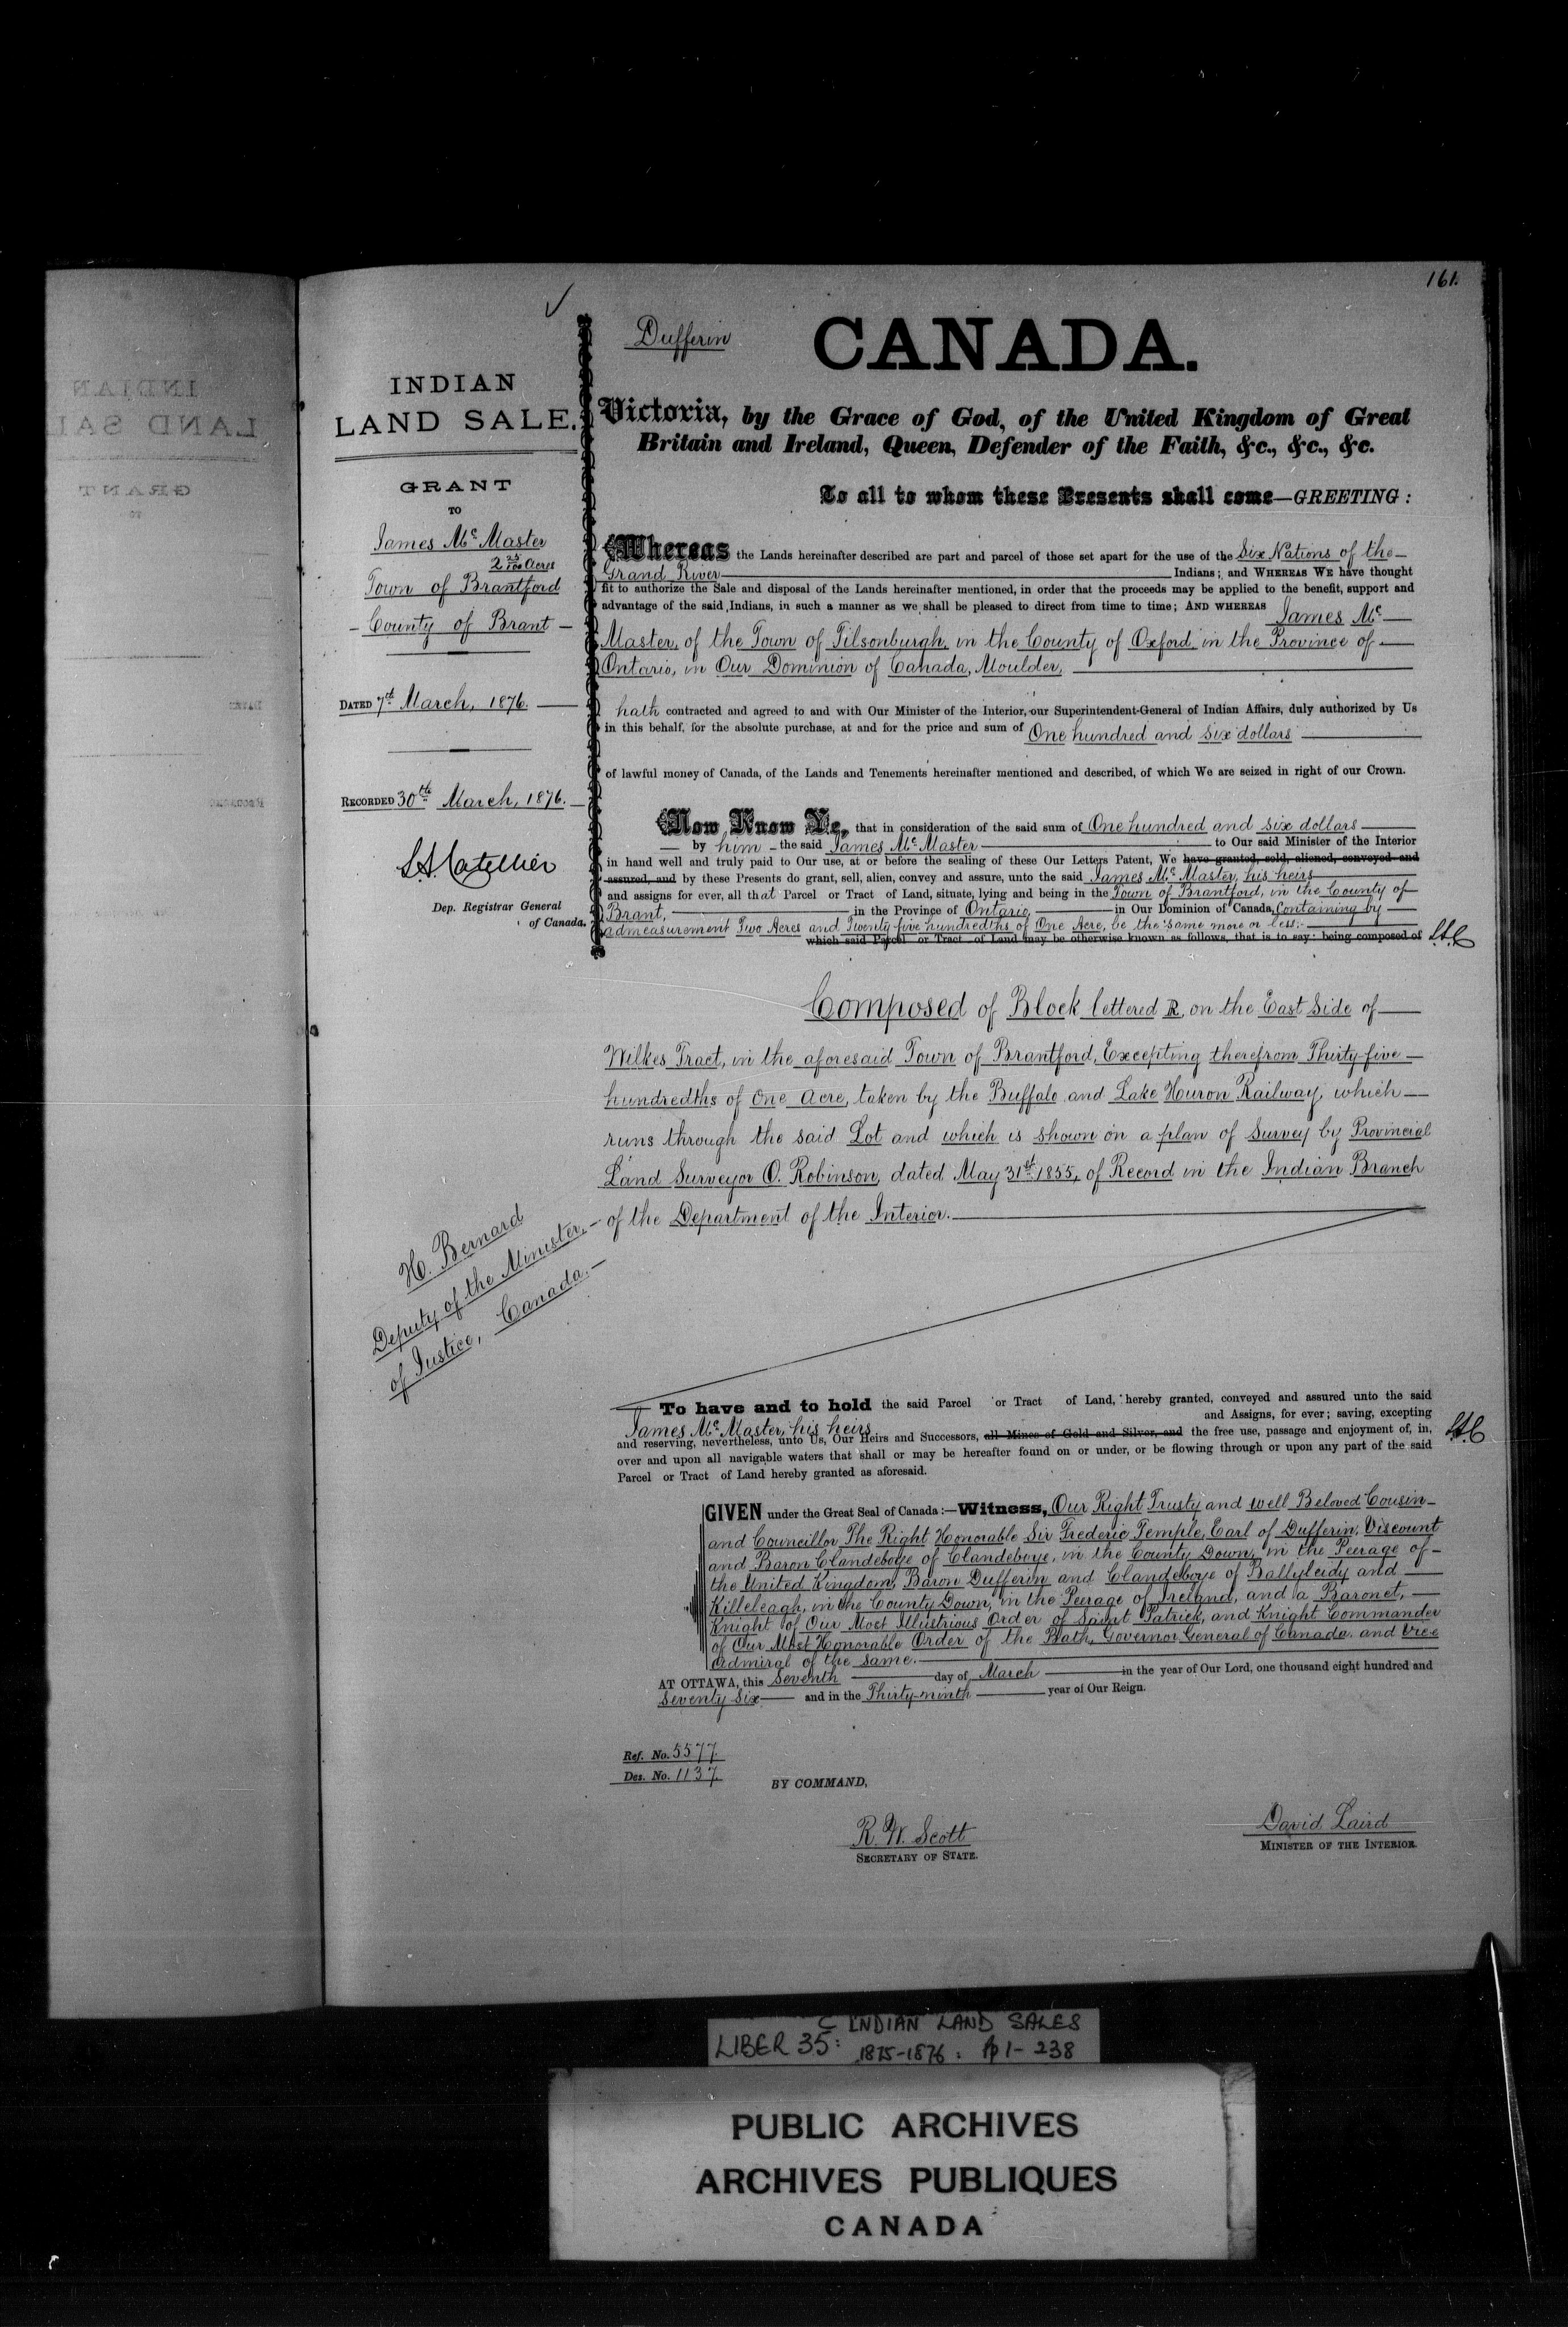 161.
INDIAN
LAND SALE.
GRANT
TO
James Mc Master
2 25/100 Acres
Town of Brantford
County of Brant
DATED 7th March, 1876.
RECORDED 30th March, 1876.
Dep. Registrar General
of Canada.
H. Bernard
Deputy of the Minister
of Justice, Canada.
Dufferin
CANADA.
Victoria, by the Grace of God, of the United Kingdom of Great
Britain and Ireland, Queen, Defender of the Faith, &c., &c., &c.
To all to whom these Presents shall come—GREETING:
Whereas the Lands hereinafter described are part and parcel of those set apart for the use of the Six Nations of the
Grand River Indians; and WHEREAS WE have thought
fit to authorize the Sale and disposal of the Lands hereinafter mentioned, in order that the proceeds may be applied to the benefit, support and
advantage of the said Indians, in such a manner as we shall be pleased to direct from time to time; AND WHEREAS James Mc
Master, of the Town of Tilsonburgh, in the County of Oxford, in the Province of
Ontario, in Our Dominion of Canada, Moulder,
hath contracted and agreed to and with Our Minister of the Interior, our Superintendent-General of Indian Affairs, duly authorized by Us
in this behalf, for the absolute purchase, at and for the price and sum of One hundred and six dollars
of lawful money of Canada, of the Lands and Tenements hereinafter mentioned and described, of which We are seized in right of our Crown.
Now Know Ye, that in consideration of the said sum of One hundred and six dollars
by him the said James Mc Master to Our said Minister of the Interior
in hand well and truly paid to Our use, at or before the sealing of these Our Letters Patent, We have granted, sold, aliened, conveyed and
assured, and by these Presents do grant, sell, alien, convey and assure, unto the said James Mc Master, his heirs
and assigns for ever, all that Parcel or Tract of Land, situate, lying and being in the Town of Brantford, in the County of
Brant, in the Province of Ontario, in Our Dominion of Canada, Containing by
admeasurement Two Acres and Twenty five hundredths of One Acre, be the same more or less:
which said Parcel or Tract of Land may be otherwise known as follows, that is to say: being composed of
Composed of Block lettered R, on the East Side of
Wilkes Tract, in the aforesaid Town of Brantford, Excepting therefrom Thirty-five
hundredths of One Acre, taken by the Buffalo and Lake Huron Railway, which
runs through the said Lot and which is shown on a plan of Survey by Provincial
Land Surveyor O. Robinson, dated May 31st 1855, of Record in the Indian Branch
of the Department of the Interior.
To have and to hold the said Parcel or Tract of Land, hereby granted, conveyed and assured unto the said
James Mc Master, his heirs and Assigns, for ever; saving, excepting
and reserving, nevertheless, unto Us, Our Heirs and Successors, all Mines of Gold and Silver, and the free use, passage and enjoyment of, in,
over and upon all navigable waters that shall or may be hereafter found on or under, or be flowing through or upon any part of the said
Parcel or Tract of Land hereby granted as aforesaid.
GIVEN under the Great Seal of Canada:—Witness, Our Right Trusty and well Beloved Cousin
and Councillor The Right Honorable Sir Frederic Temple, Earl of Dufferin, Viscount
and Baron Clandeboye of Clandeboye, in the County Down, in the Peerage of
the United Kingdom, Baron Dufferin and Clandeboye of Ballyleidy and
Killeleagh, in the County Down, in the Peerage of Ireland, and a Baronet,
Knight of Our Most Illustrious Order of Saint Patrick, and Knight Commander
of Our Most Honorable Order of the Bath, Governor General of Canada and Vice
Admiral of the same.
AT OTTAWA, this Seventh day of March in the year of Our Lord, one thousand eight hundred and
Seventy Six and in the Thirty-ninth year of Our Reign.
Ref. No. 5577.
Des. No. 1137.
BY COMMAND,
R. W. Scott
SECRETARY OF STATE.
David Laird
MINISTER OF THE INTERIOR.
C INDIAN LAND SALES
LIBER 35: 1875-1876: pp 1-238
PUBLIC ARCHIVES
ARCHIVES PUBLIQUES
CANADA